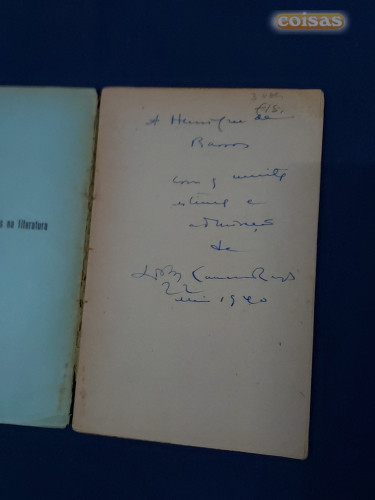 coisas
s na literatura
A Henrique de
Barros
com a muita
estima e
admiração
de
22
1940